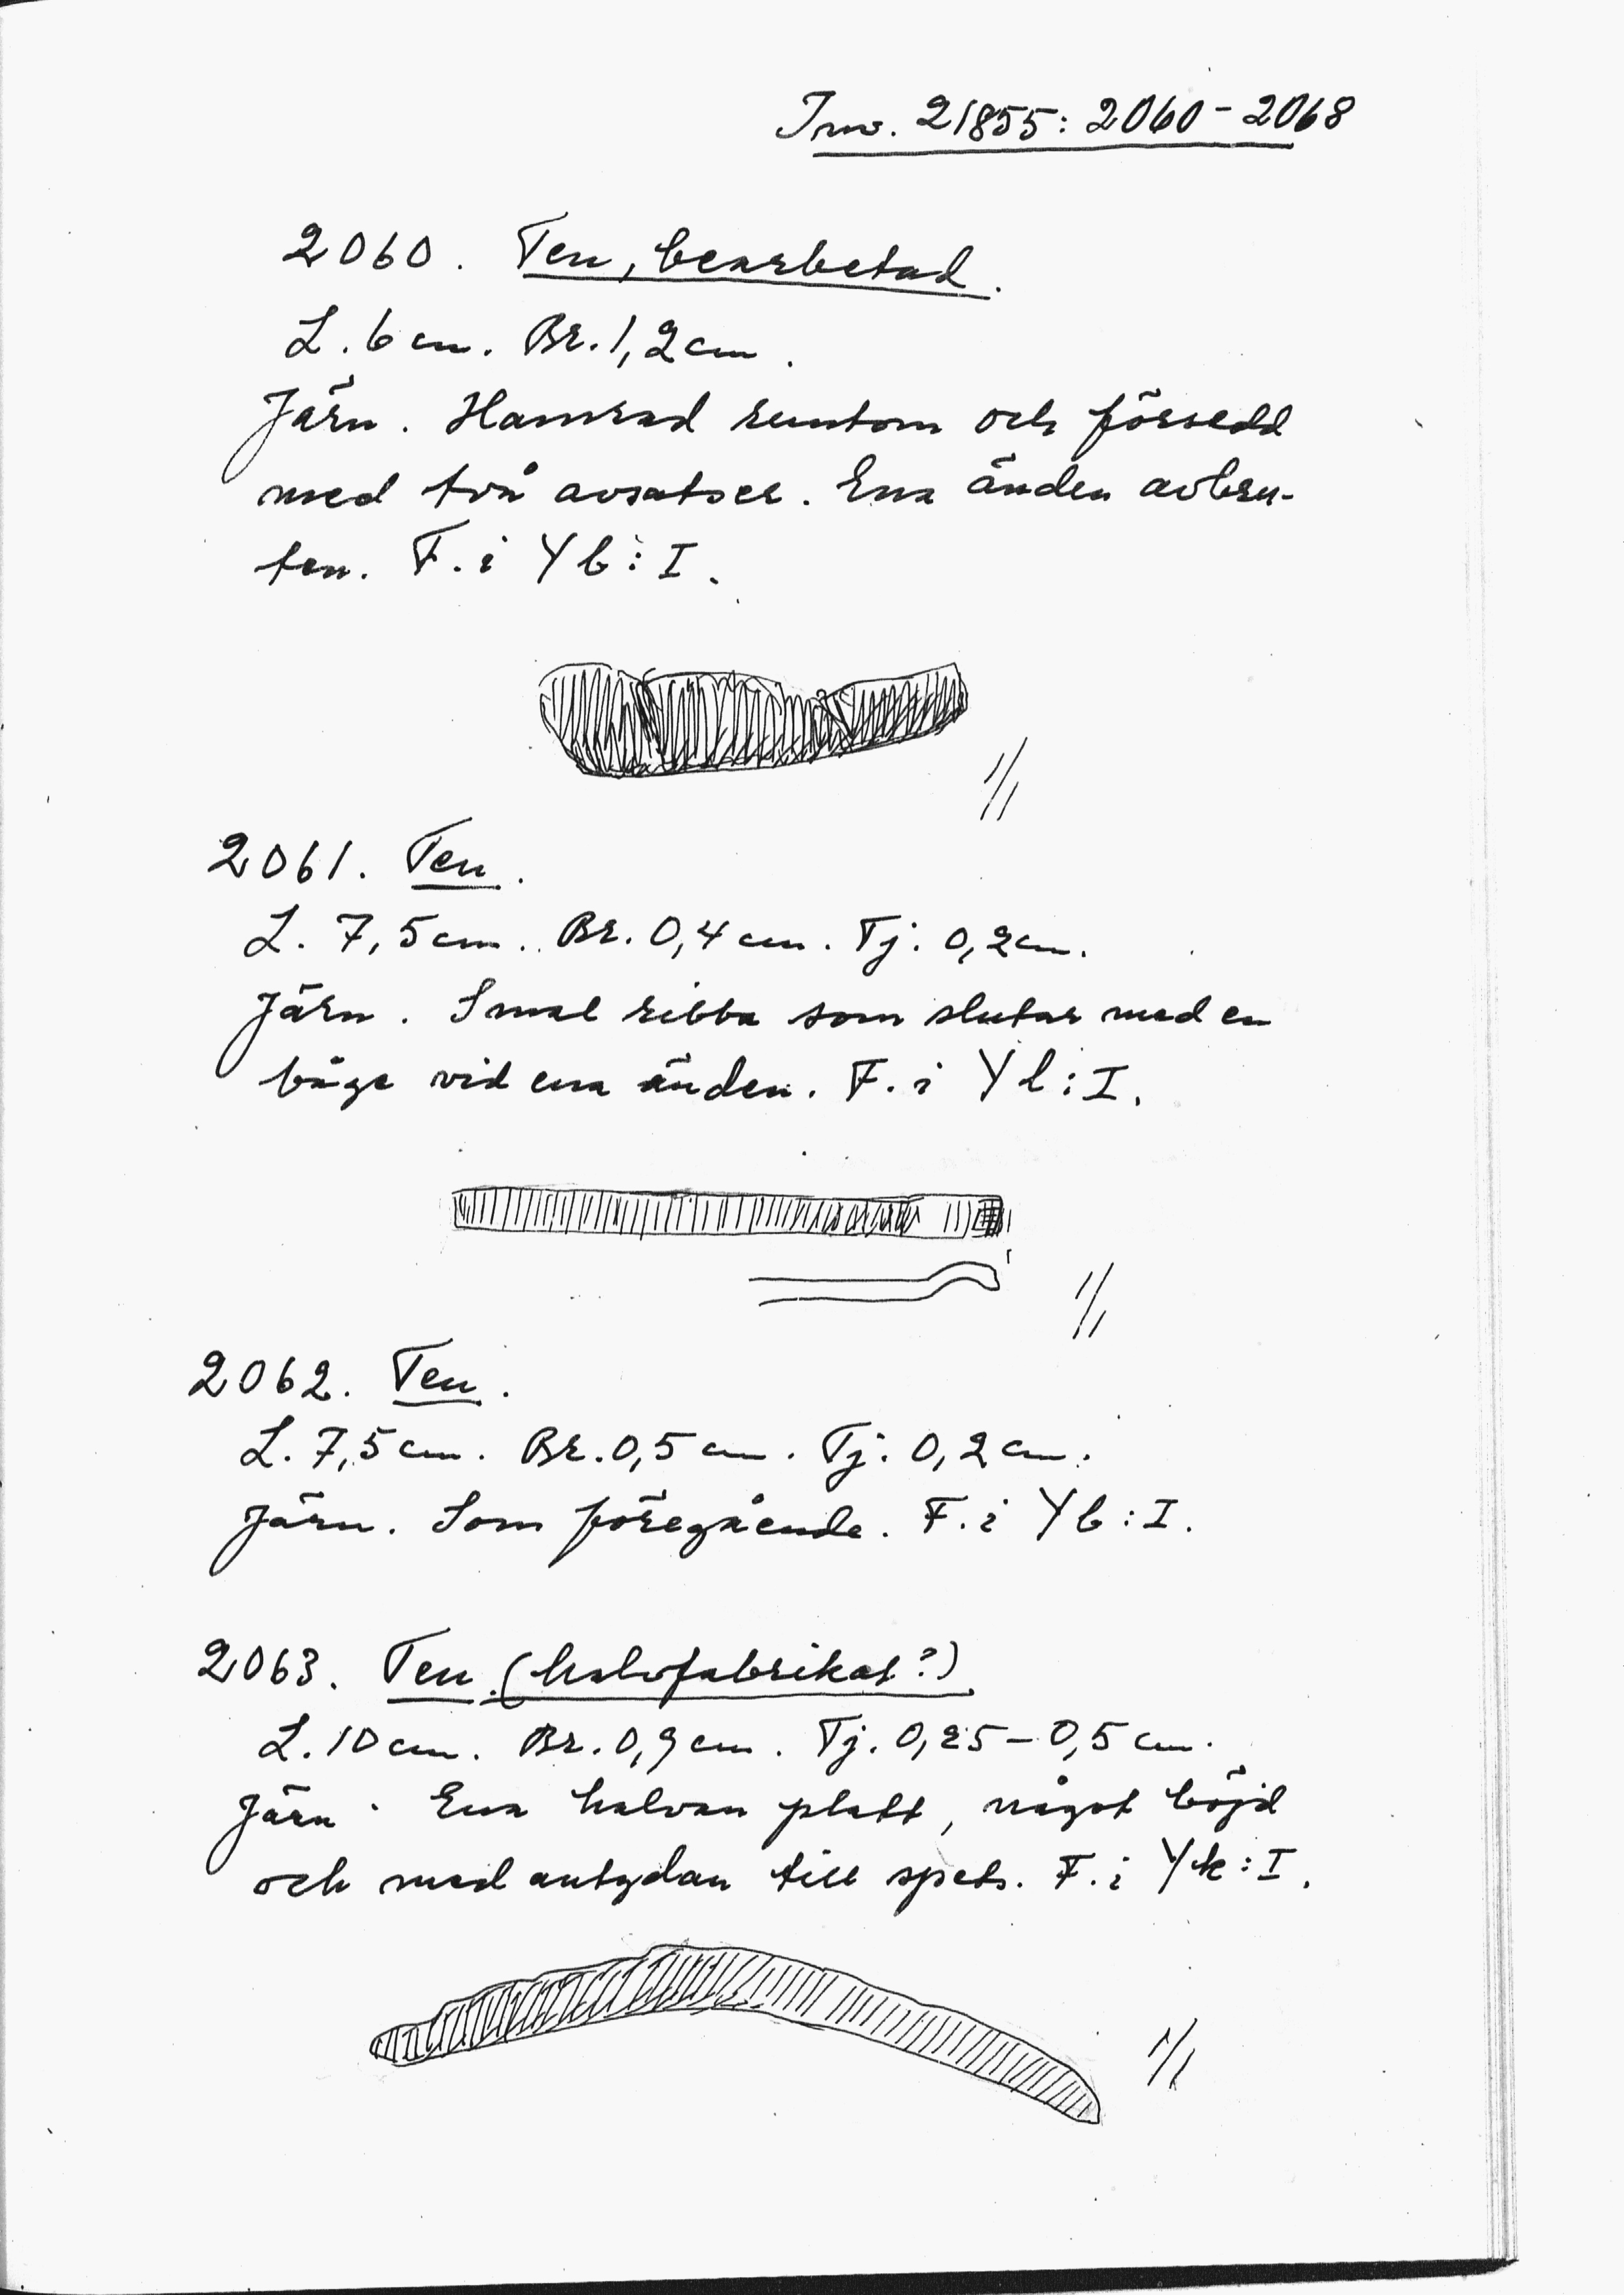 Inv. 21855: 2060-2068
2060. Ten, bearbetad.
L. 6 cm. Br. 1,2 cm.
Järn. Hamrad runtom och försedd
med två avsatser. Ena änden avbru-
ten. F. i Yb: I.
1/1
2061. Ten.
L. 7,5 cm. Br. 0,4 cm. Tj. 0,2 cm.
Järn. Smal ribba som slutar med en
båge vid ena änden. F. i Yl: I.
1/1
2062. Ten.
L. 7,5 cm. Br. 0,5 cm. Tj. 0,2 cm.
Järn. Som föregående. F. i Yb: I.
2063. Ten (halvfabrikat?)
L. 10 cm. Br. 0,9 cm. Tj. 0,25-0,5 cm.
Järn. Ena halvan platt, något böjd
och med antydan till spets. F. i Yk: I.
1/1